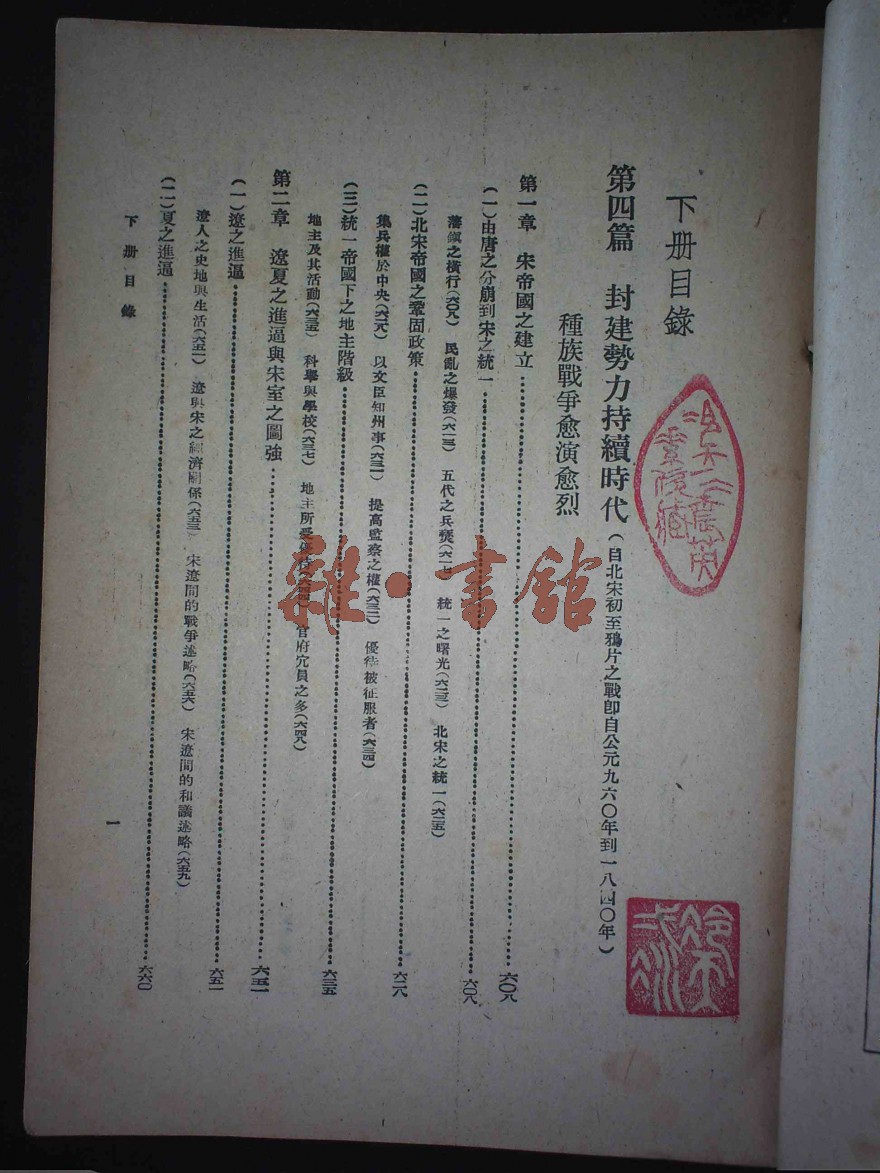 下册目錄
第四篇 封建勢力持續時代(自北宋初至鴉片之戰卽自公元九六〇年到一八四〇年)
種族戰爭愈演愈烈
第一章 宋帝國之建立⋯⋯六〇八
(一)由唐之分崩到宋之統一⋯⋯六〇八
藩鎭之橫行(六〇八) 民亂之爆發(六一三) 五代之兵燹(六一七) 統一之曙光(六二三) 北宋之統一(六二五)
(二)北宋帝國之鞏固政策⋯⋯六二八
集兵權於中央(六二八) 以文臣知州事(六三一) 提高監察之權(六三二) 優待被征服者(六三四)
(三)統一帝國下之地主階級⋯⋯六三五
地主及其活動(六三五) 科舉與學校(六三七) 地主所受優待 官府冗員之多(六四八)
第二章 遼夏之進逼與宋室之圖強⋯⋯六五一
(一)遼之進逼⋯⋯六五一
遼人之史地與生活(六五一) 遼與宋之經濟關係(六五三) 宋遼間的戰爭述略(六五六) 宋遼間的和議述略(六五九)
(二)夏之進逼⋯⋯六六〇
下册目錄
一
雜·書館